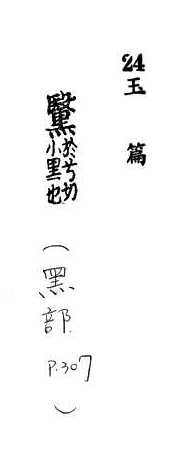 24 玉篇
黳 於兮切
小黑也
(黑部 P.307)